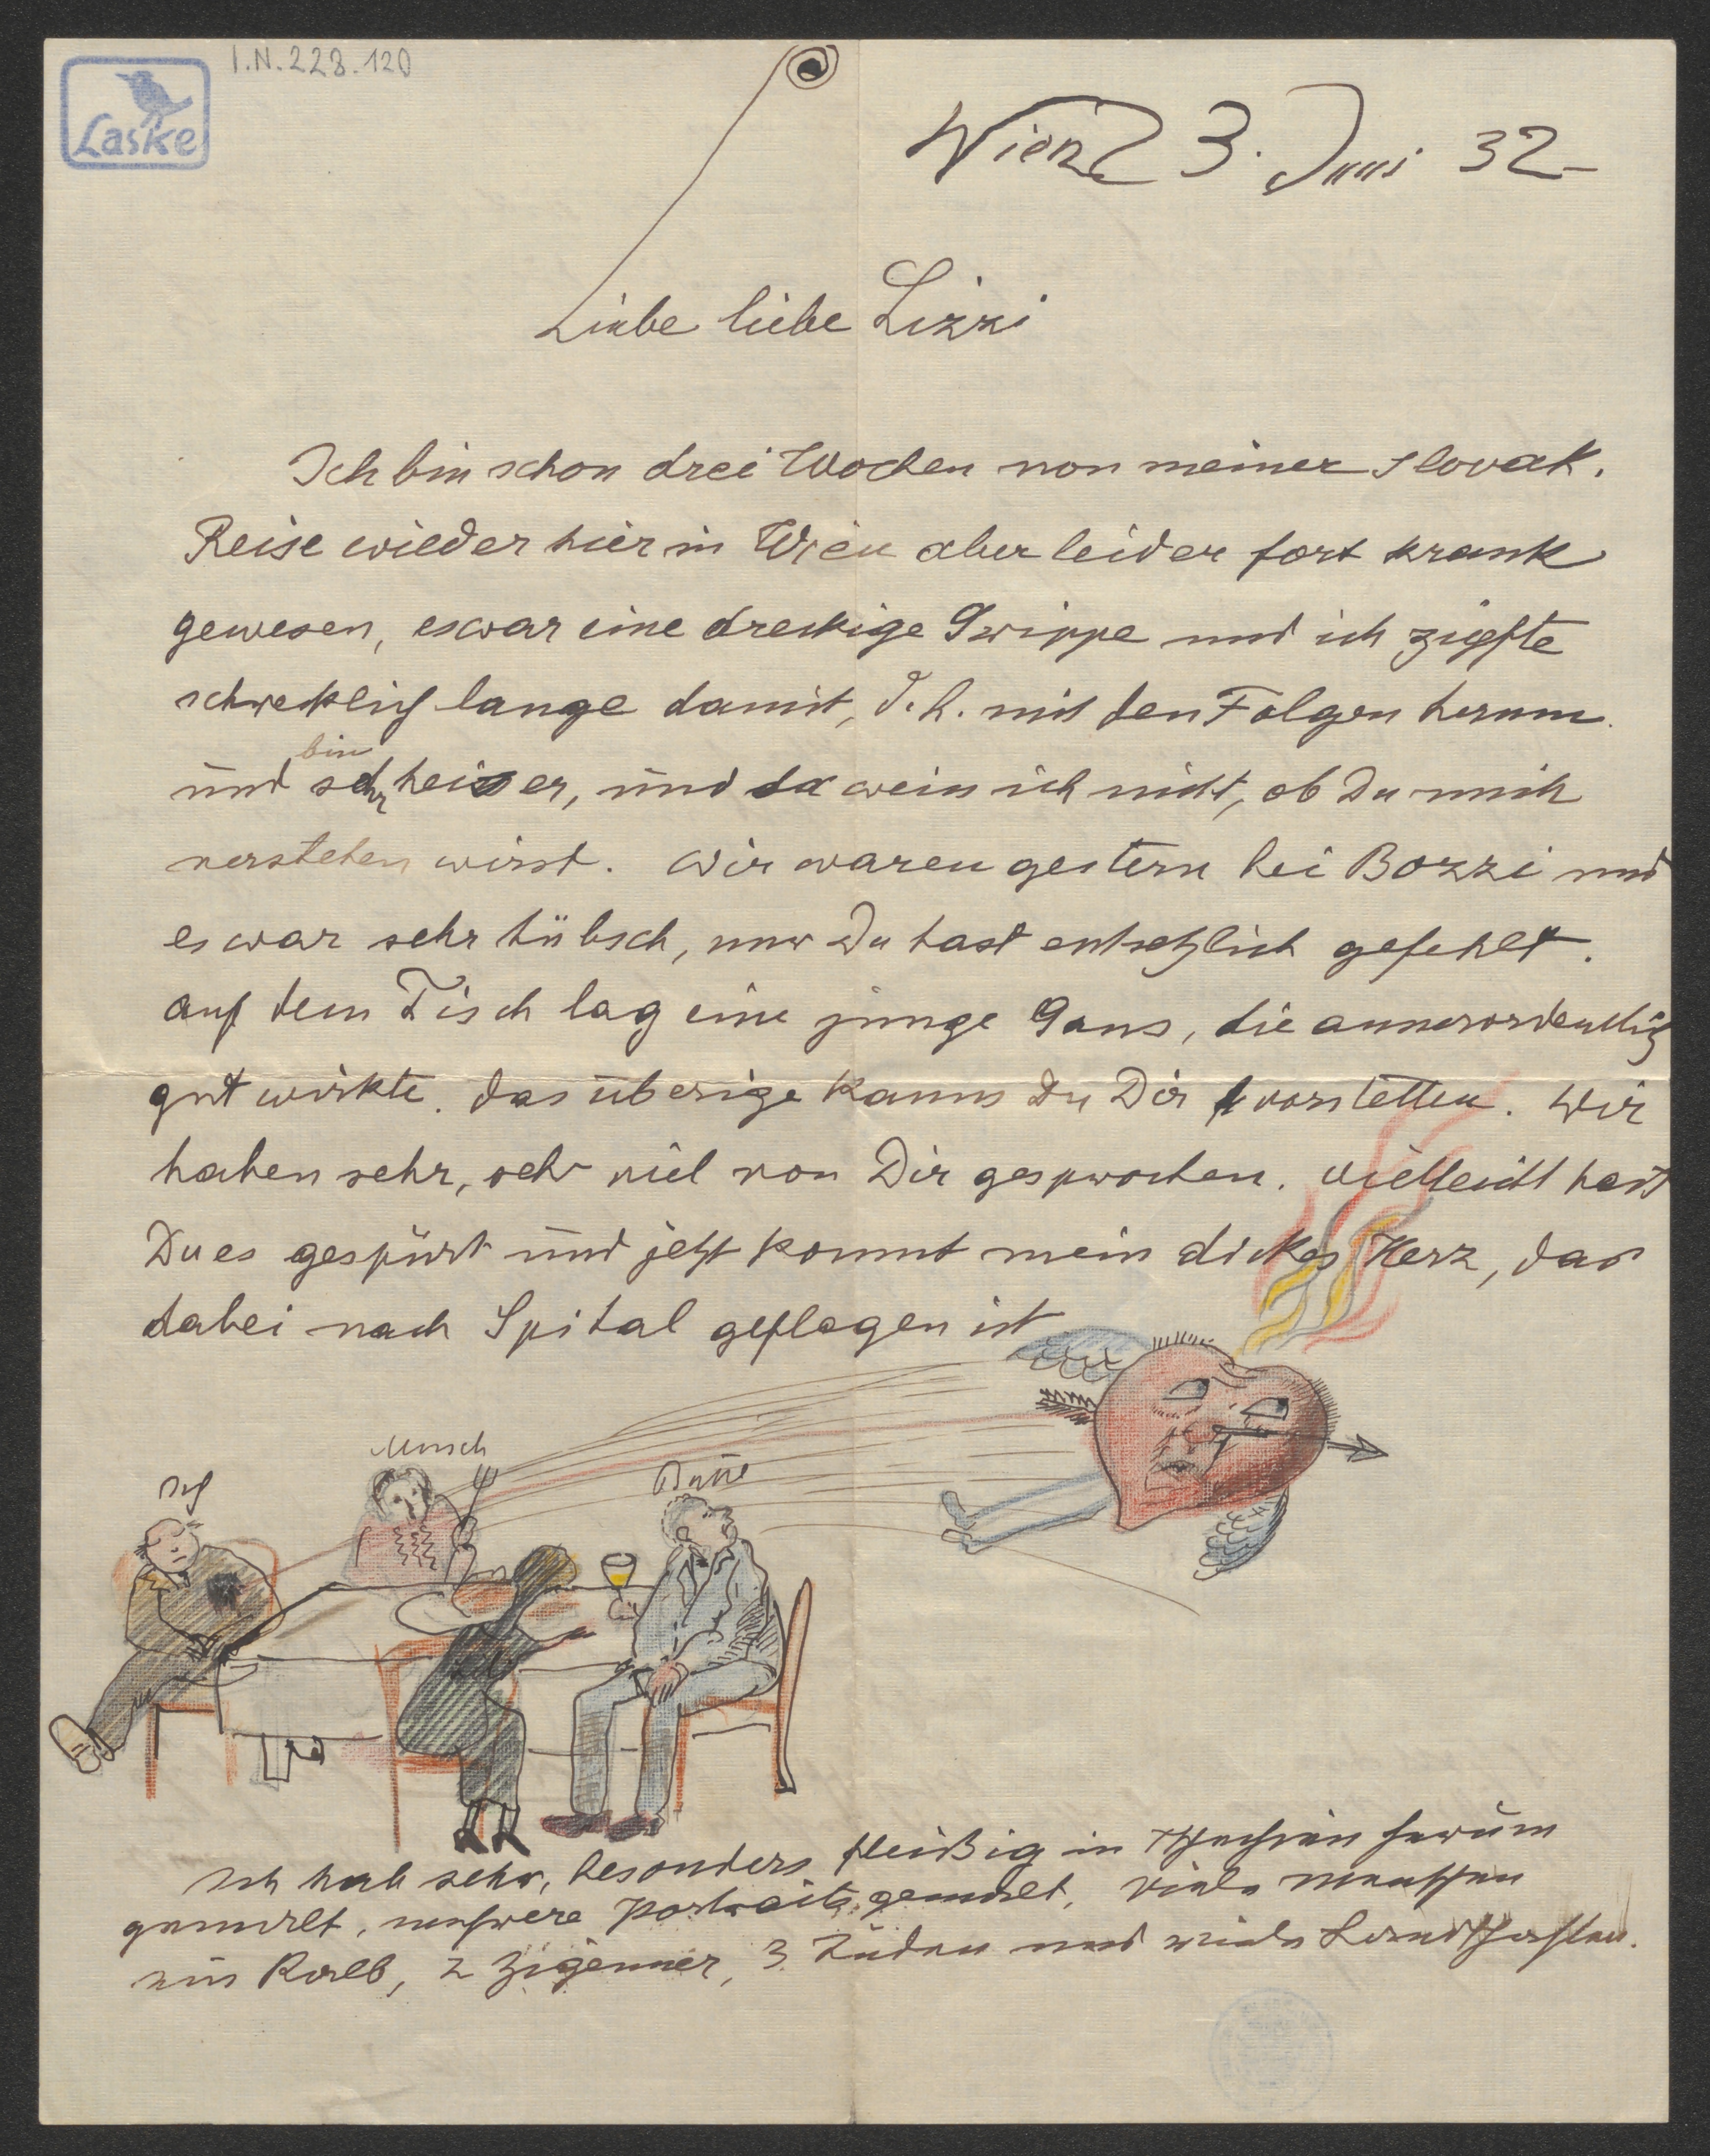 I.N. 228.120
Laske
Wien 3. Juni 32
Liebe liebe Lizzi
Ich bin schon drei Wochen von meiner slovak.
Reise wieder hier in Wien aber leider fort krank
gewesen, es war eine dreckige Grippe und ich zipfte
schrecklich lange damit, d. h. mit den Folgen herum
bin
und sehr heiser, und da weis ich nicht, ob Du mich
verstehen wirst. Wir waren gestern bei Bozzi und
es war sehr hübsch, nur Du hast entsetzlich gefehlt.
auf dem Tisch lag eine junge Gans, die ausserordentlich
gut wirkte. das überige kanns du Dir vorstellen. Wir
haben sehr, sehr viel von Dir gesprochen. vielleicht hast
Du es gespürt und jetzt kommt mein dickes Herz, das
dabei nach Spital geflogen ist
Musch
Ich
Ich hab sehr, besonders fleißig in herum
gemalt, mehrere Portraits gemalt, viele Menschen
ein Kalb, 2 Zigeuner, 3 Juden und viele Landschaften.